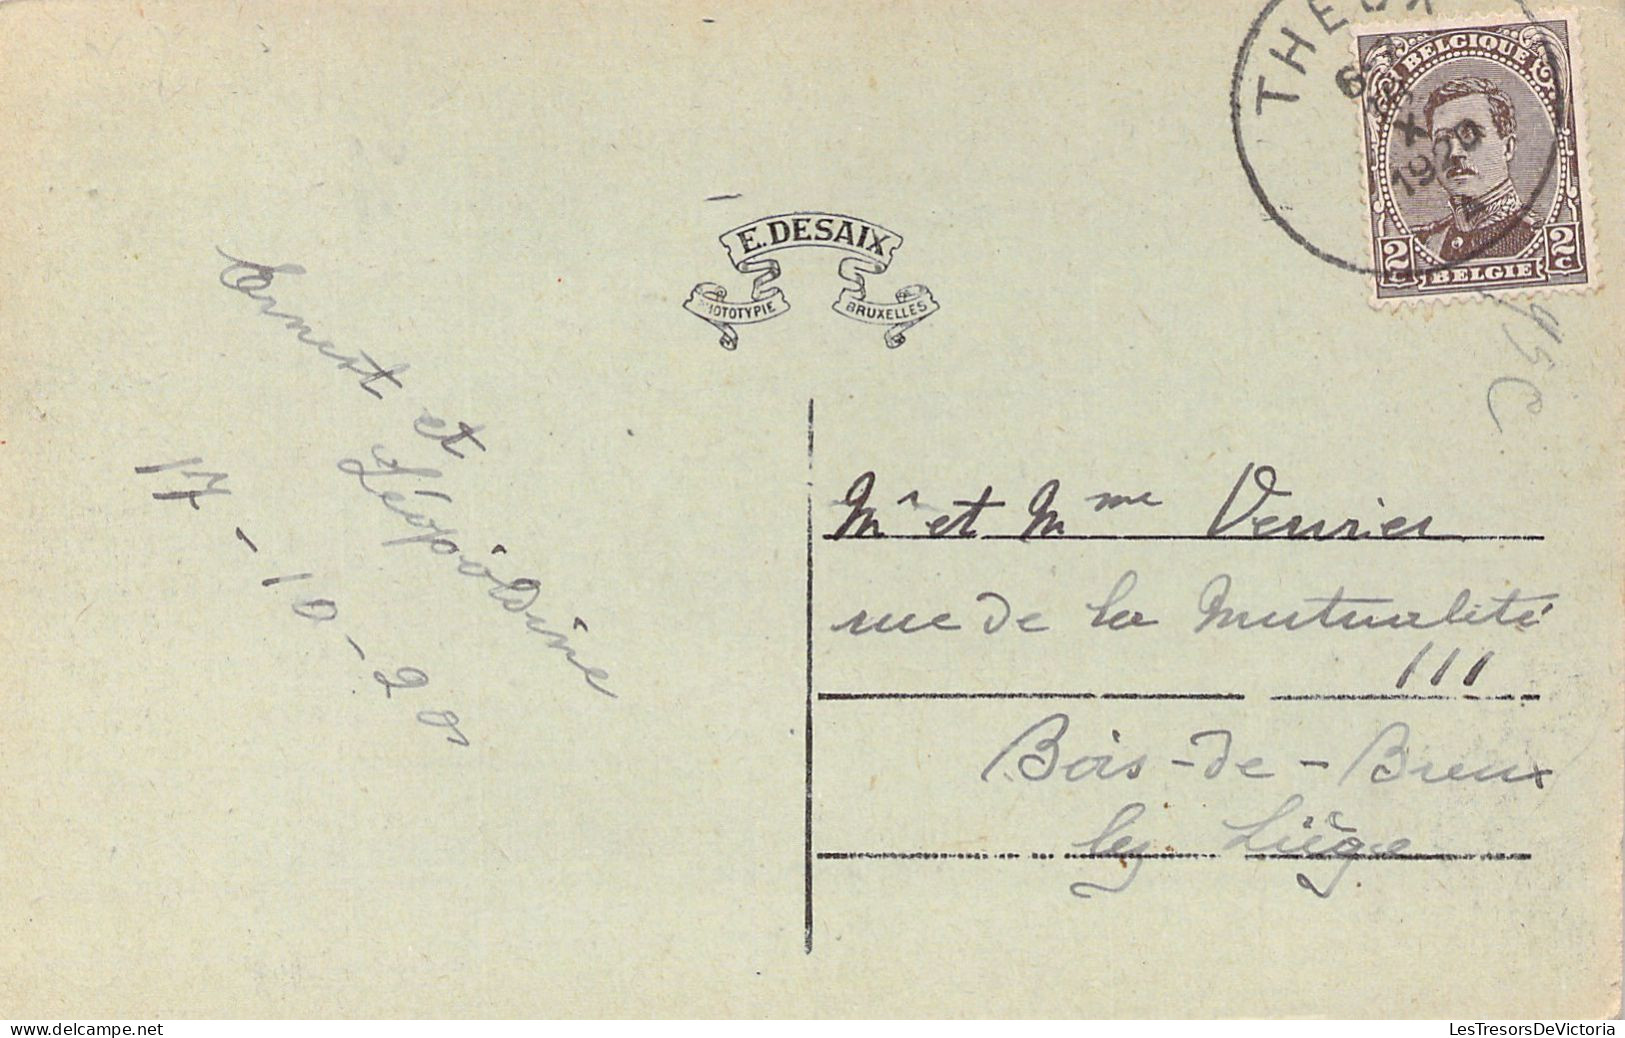 THEUX
6-7
X
1920
BELGIQUE
2c 2c
BELGIE
E. DESAIX
PHOTOTYPIE BRUXELLES
Ernest et
Léopoldine
17-10-20
Mr et Mme Verrier
rue de la Mutualité
111
Bois-de-Breux
lez Liège
delcampe.net
LesTresorsDeVictoria